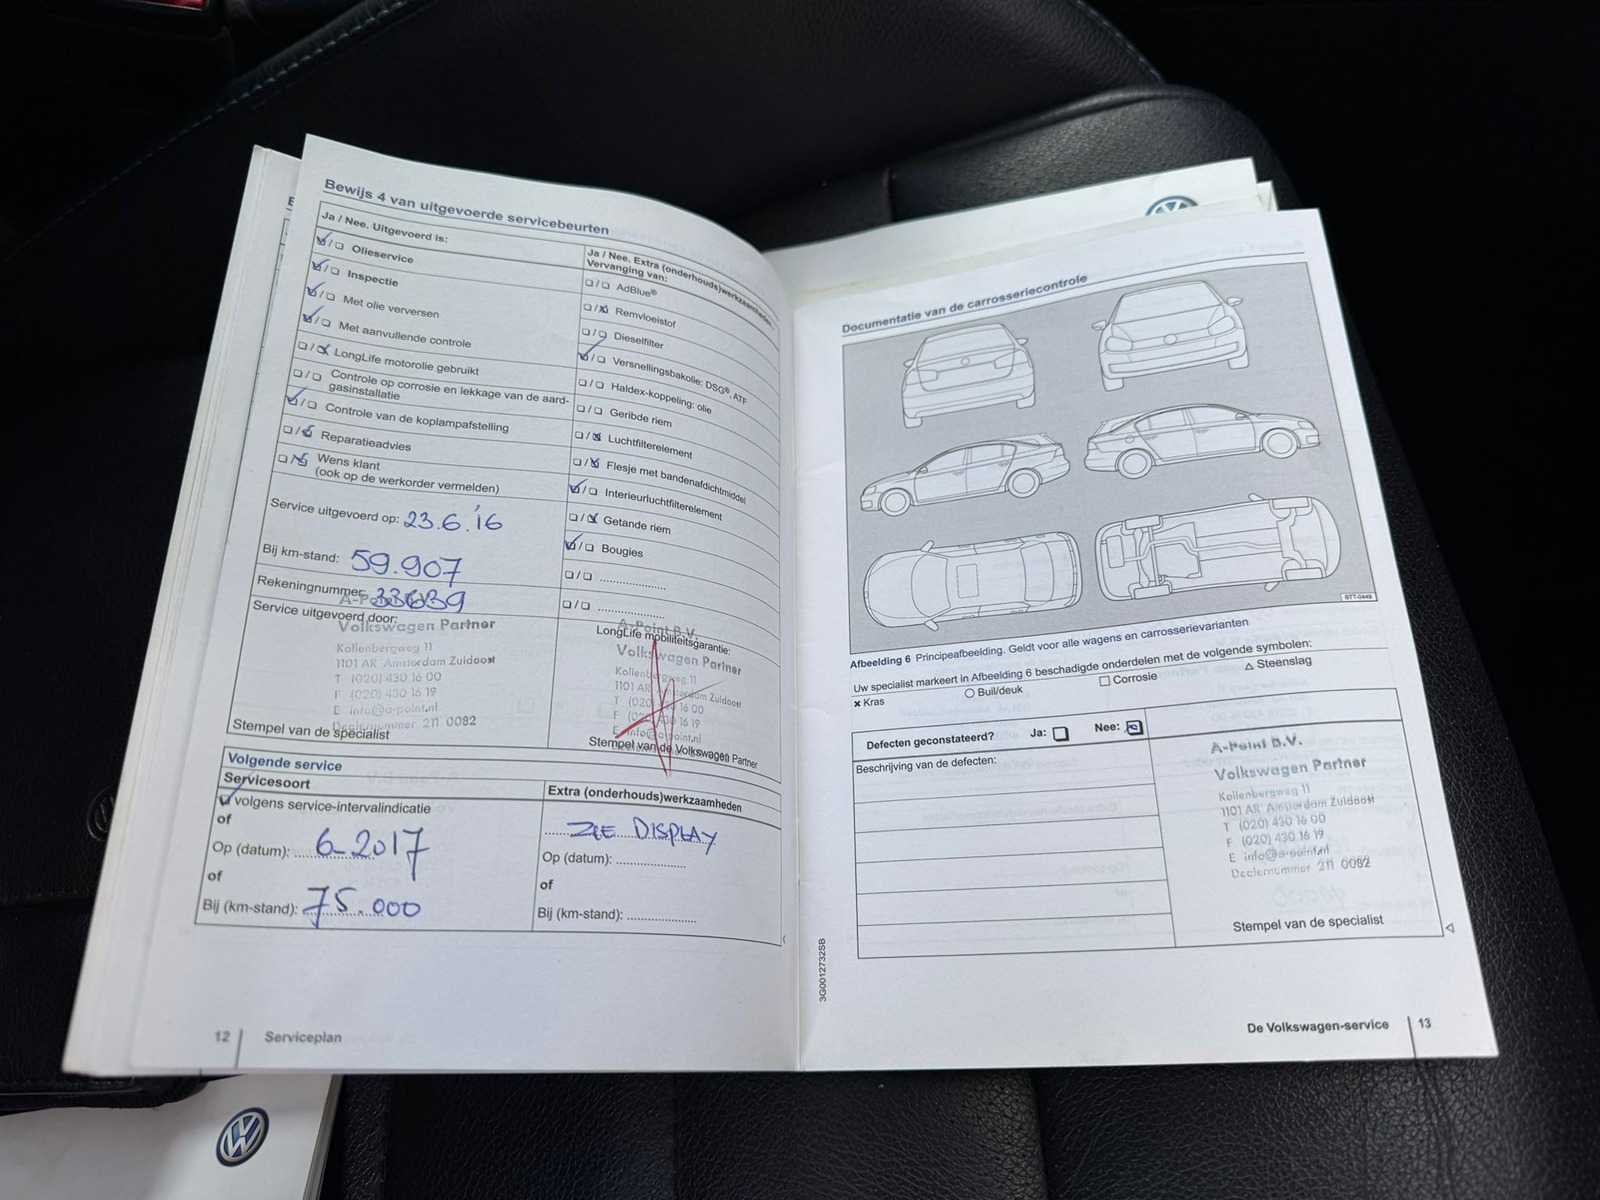 Bewijs 4 van uitgevoerde servicebeurten
Ja / Nee. Uitgevoerd is:
Olieservice
Inspectie
Met olie verversen
Met aanvullende controle
LongLife motorolie gebruikt
Controle op corrosie en lekkage van de aard-
gasinstallatie
Controle van de koplampafstelling
Reparatieadvies
Wens klant
(ook op de werkorder vermelden)
Service uitgevoerd op: 23.6.'16
Bij km-stand: 59.907
Rekeningnummer: 33639
Service uitgevoerd door:
Volkswagen Partner
Kollenbergweg 11
1101 AR Amsterdam Zuidoost
T (020) 430 16 00
F (020) 430 16 19
E info@a-point.nl
Dealernummer 211 0082
Stempel van de specialist
Ja / Nee. Extra (onderhouds)werkzaamheden
Vervanging van:
AdBlue®
Remvloeistof
Dieselfilter
Versnellingsbakolie: DSG®, ATF
Haldex-koppeling: olie
Geribde riem
Luchtfilterelement
Flesje met bandenafdichtmiddel
Interieurluchtfilterelement
Getande riem
Bougies
A-Point B.V.
LongLife mobiliteitsgarantie:
Volkswagen Partner
Kollenbergweg 11
1101 AR Amsterdam Zuidoost
T (020) 430 16 00
F (020) 430 16 19
E info@a-point.nl
Stempel van de Volkswagen Partner
Volgende service
Servicesoort
volgens service-intervalindicatie
of
Op (datum): 6-2017
of
Bij (km-stand): 75.000
Extra (onderhouds)werkzaamheden
ZIE DISPLAY
Op (datum):
of
Bij (km-stand):
12 Serviceplan
Documentatie van de carrosseriecontrole
BTT-0449
Afbeelding 6 Principeafbeelding. Geldt voor alle wagens en carrosserievarianten
Uw specialist markeert in Afbeelding 6 beschadigde onderdelen met de volgende symbolen:
× Kras ○ Buil/deuk □ Corrosie △ Steenslag
Defecten geconstateerd? Ja: Nee:
Beschrijving van de defecten:
A-Point B.V.
Volkswagen Partner
Kollenbergweg 11
1101 AR Amsterdam Zuidoost
T (020) 430 16 00
F (020) 430 16 19
E info@a-point.nl
Dealernummer 211 0082
Stempel van de specialist
3G0012732SB
De Volkswagen-service 13